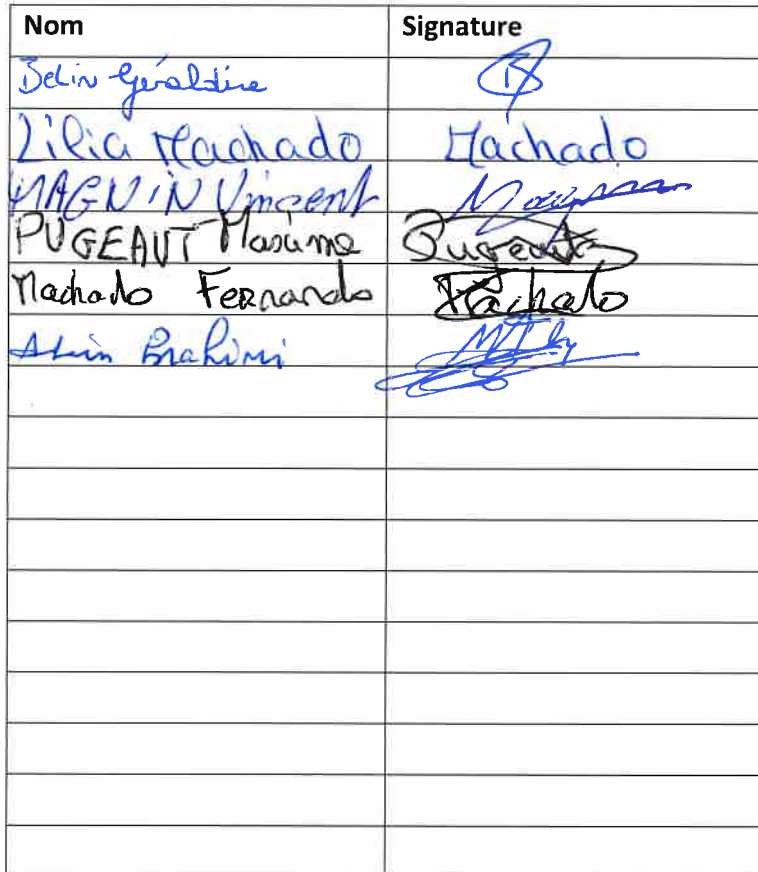 Nom Signature
Belin Géraldine B
Lilia Machado Machado
MAGNIN Vincent
PUGEAUT Maxime Pugeaut
Machado Fernando Machado
Brahimi